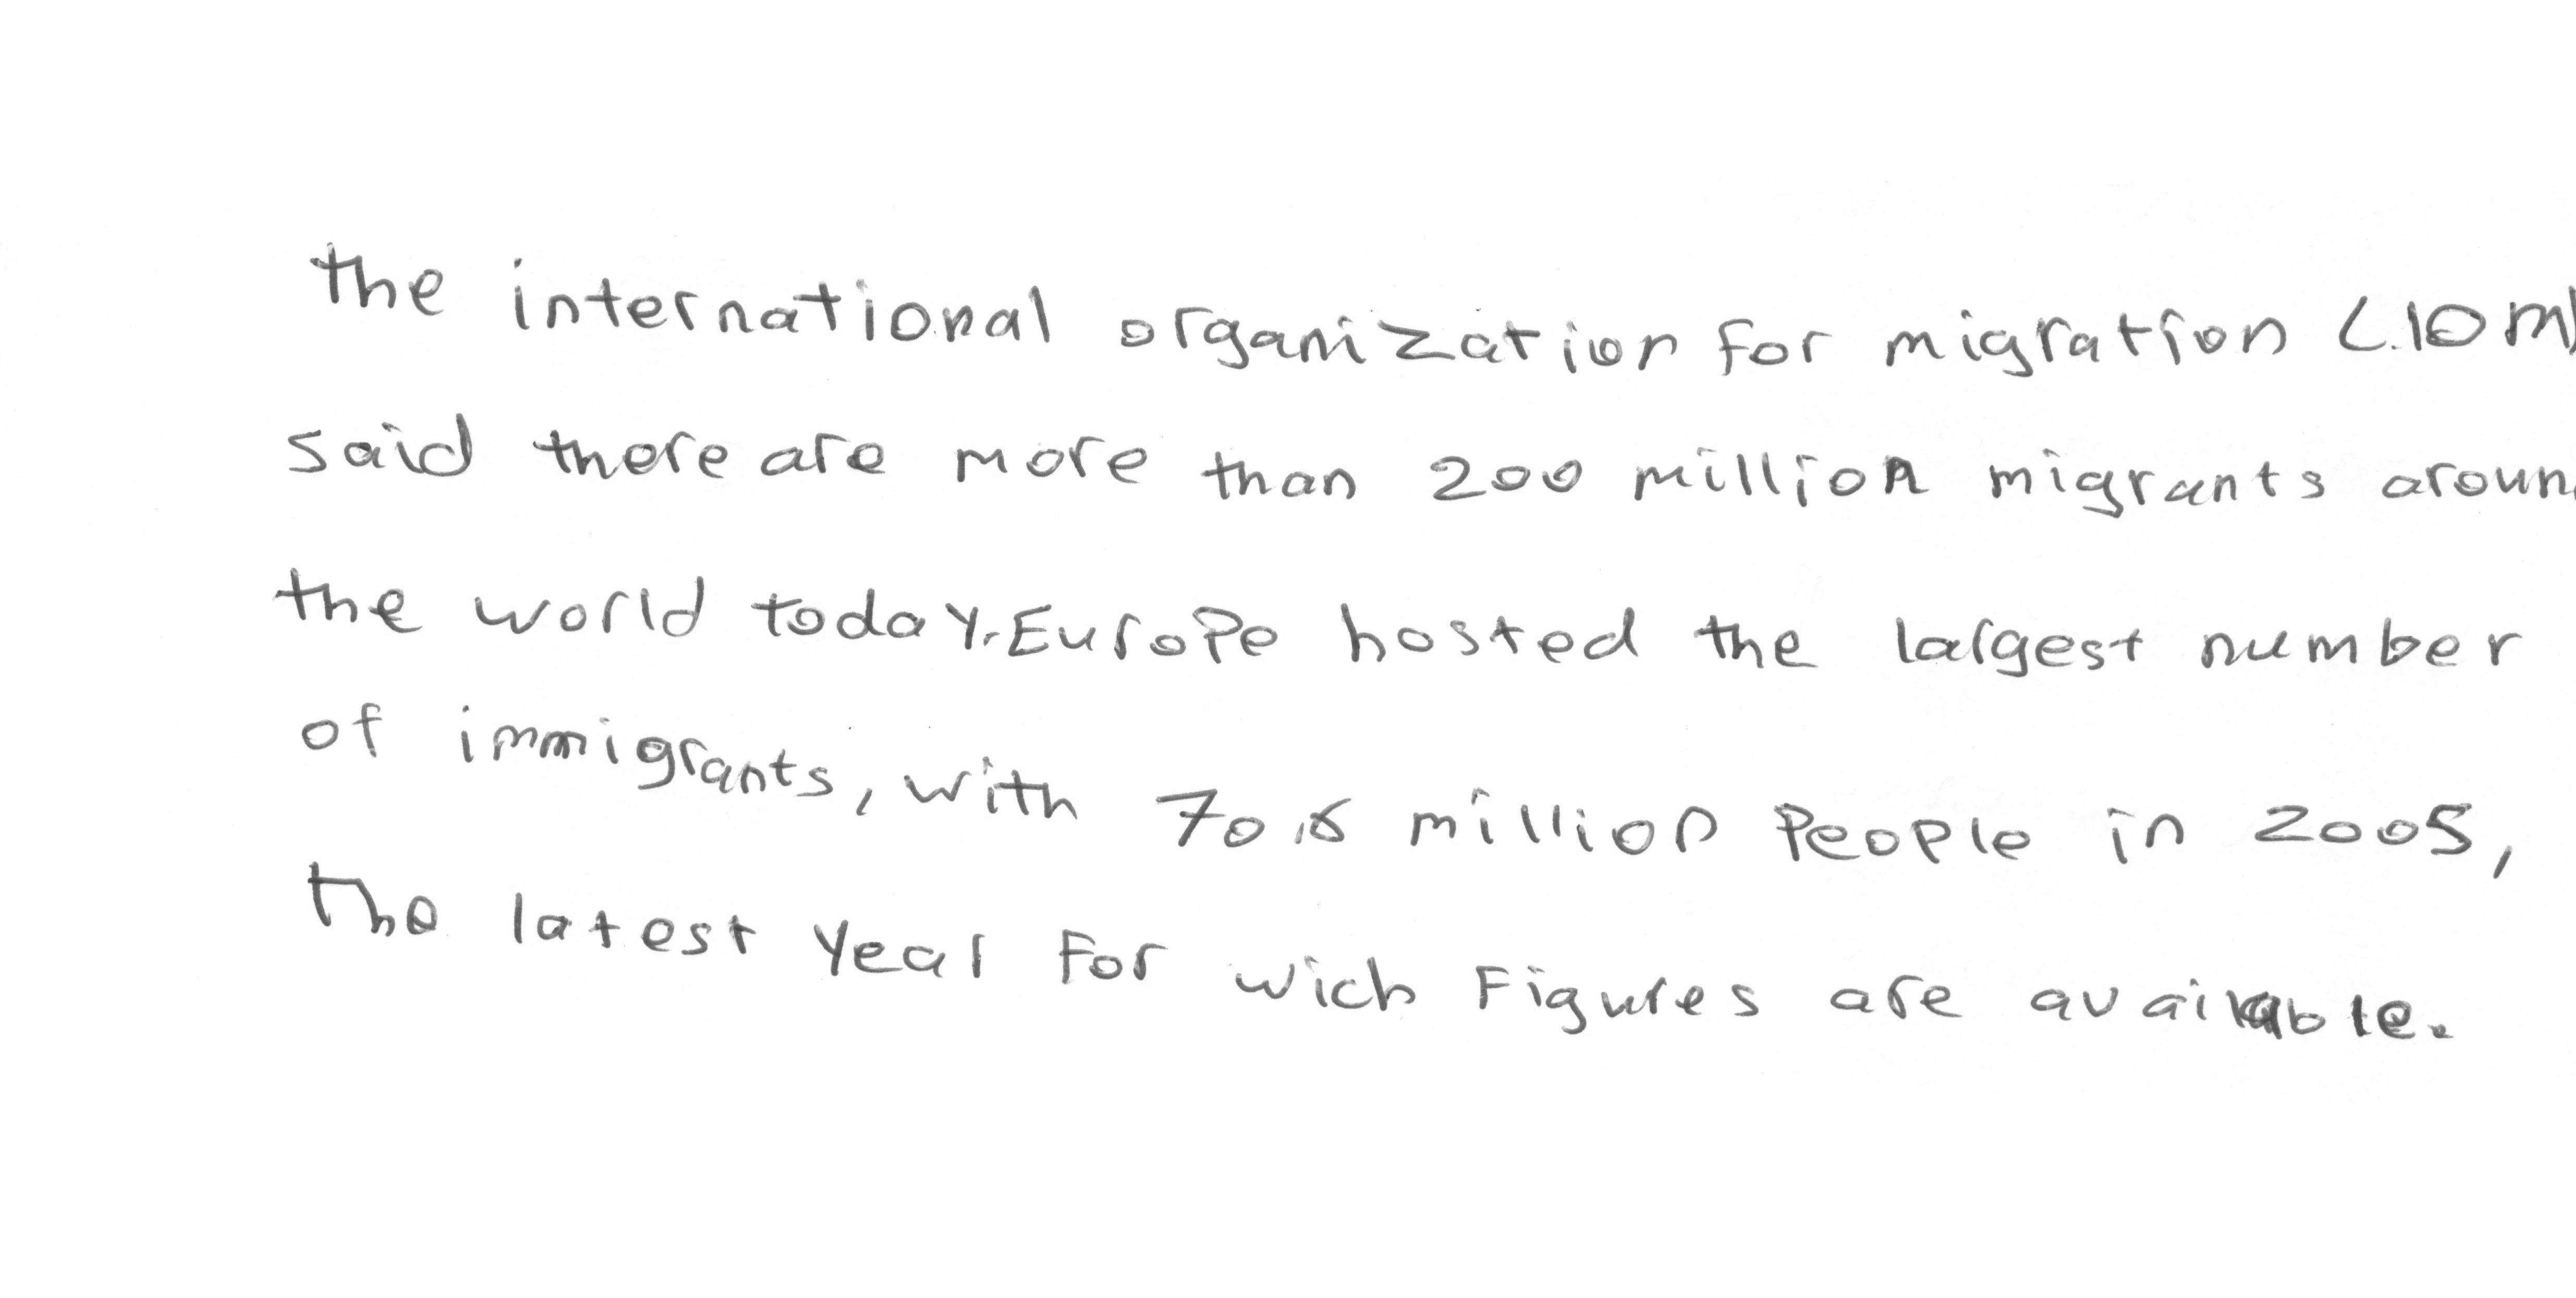 the international organization for migration (IOM)
said there are more than 200 million migrants aroun
the world today. Europe hosted the largest number
of immigrants, with 70.6 million People in 2005,
the latest year For wich Figures are available.